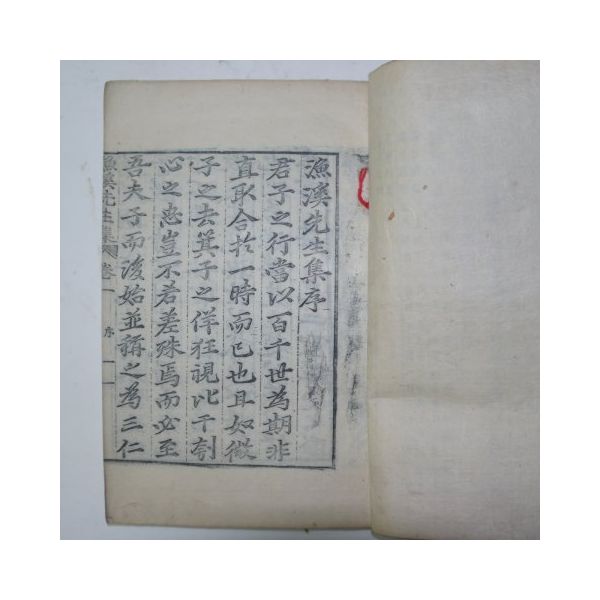 漁溪先生集序
君子之行當以百千世為期非
直取合於一時而已也且如微
子之去箕子之佯狂視比干刳
心之忠豈不若差殊焉而必至
吾夫子而後始並稱之為三仁
漁溪先生集 卷一 序 一